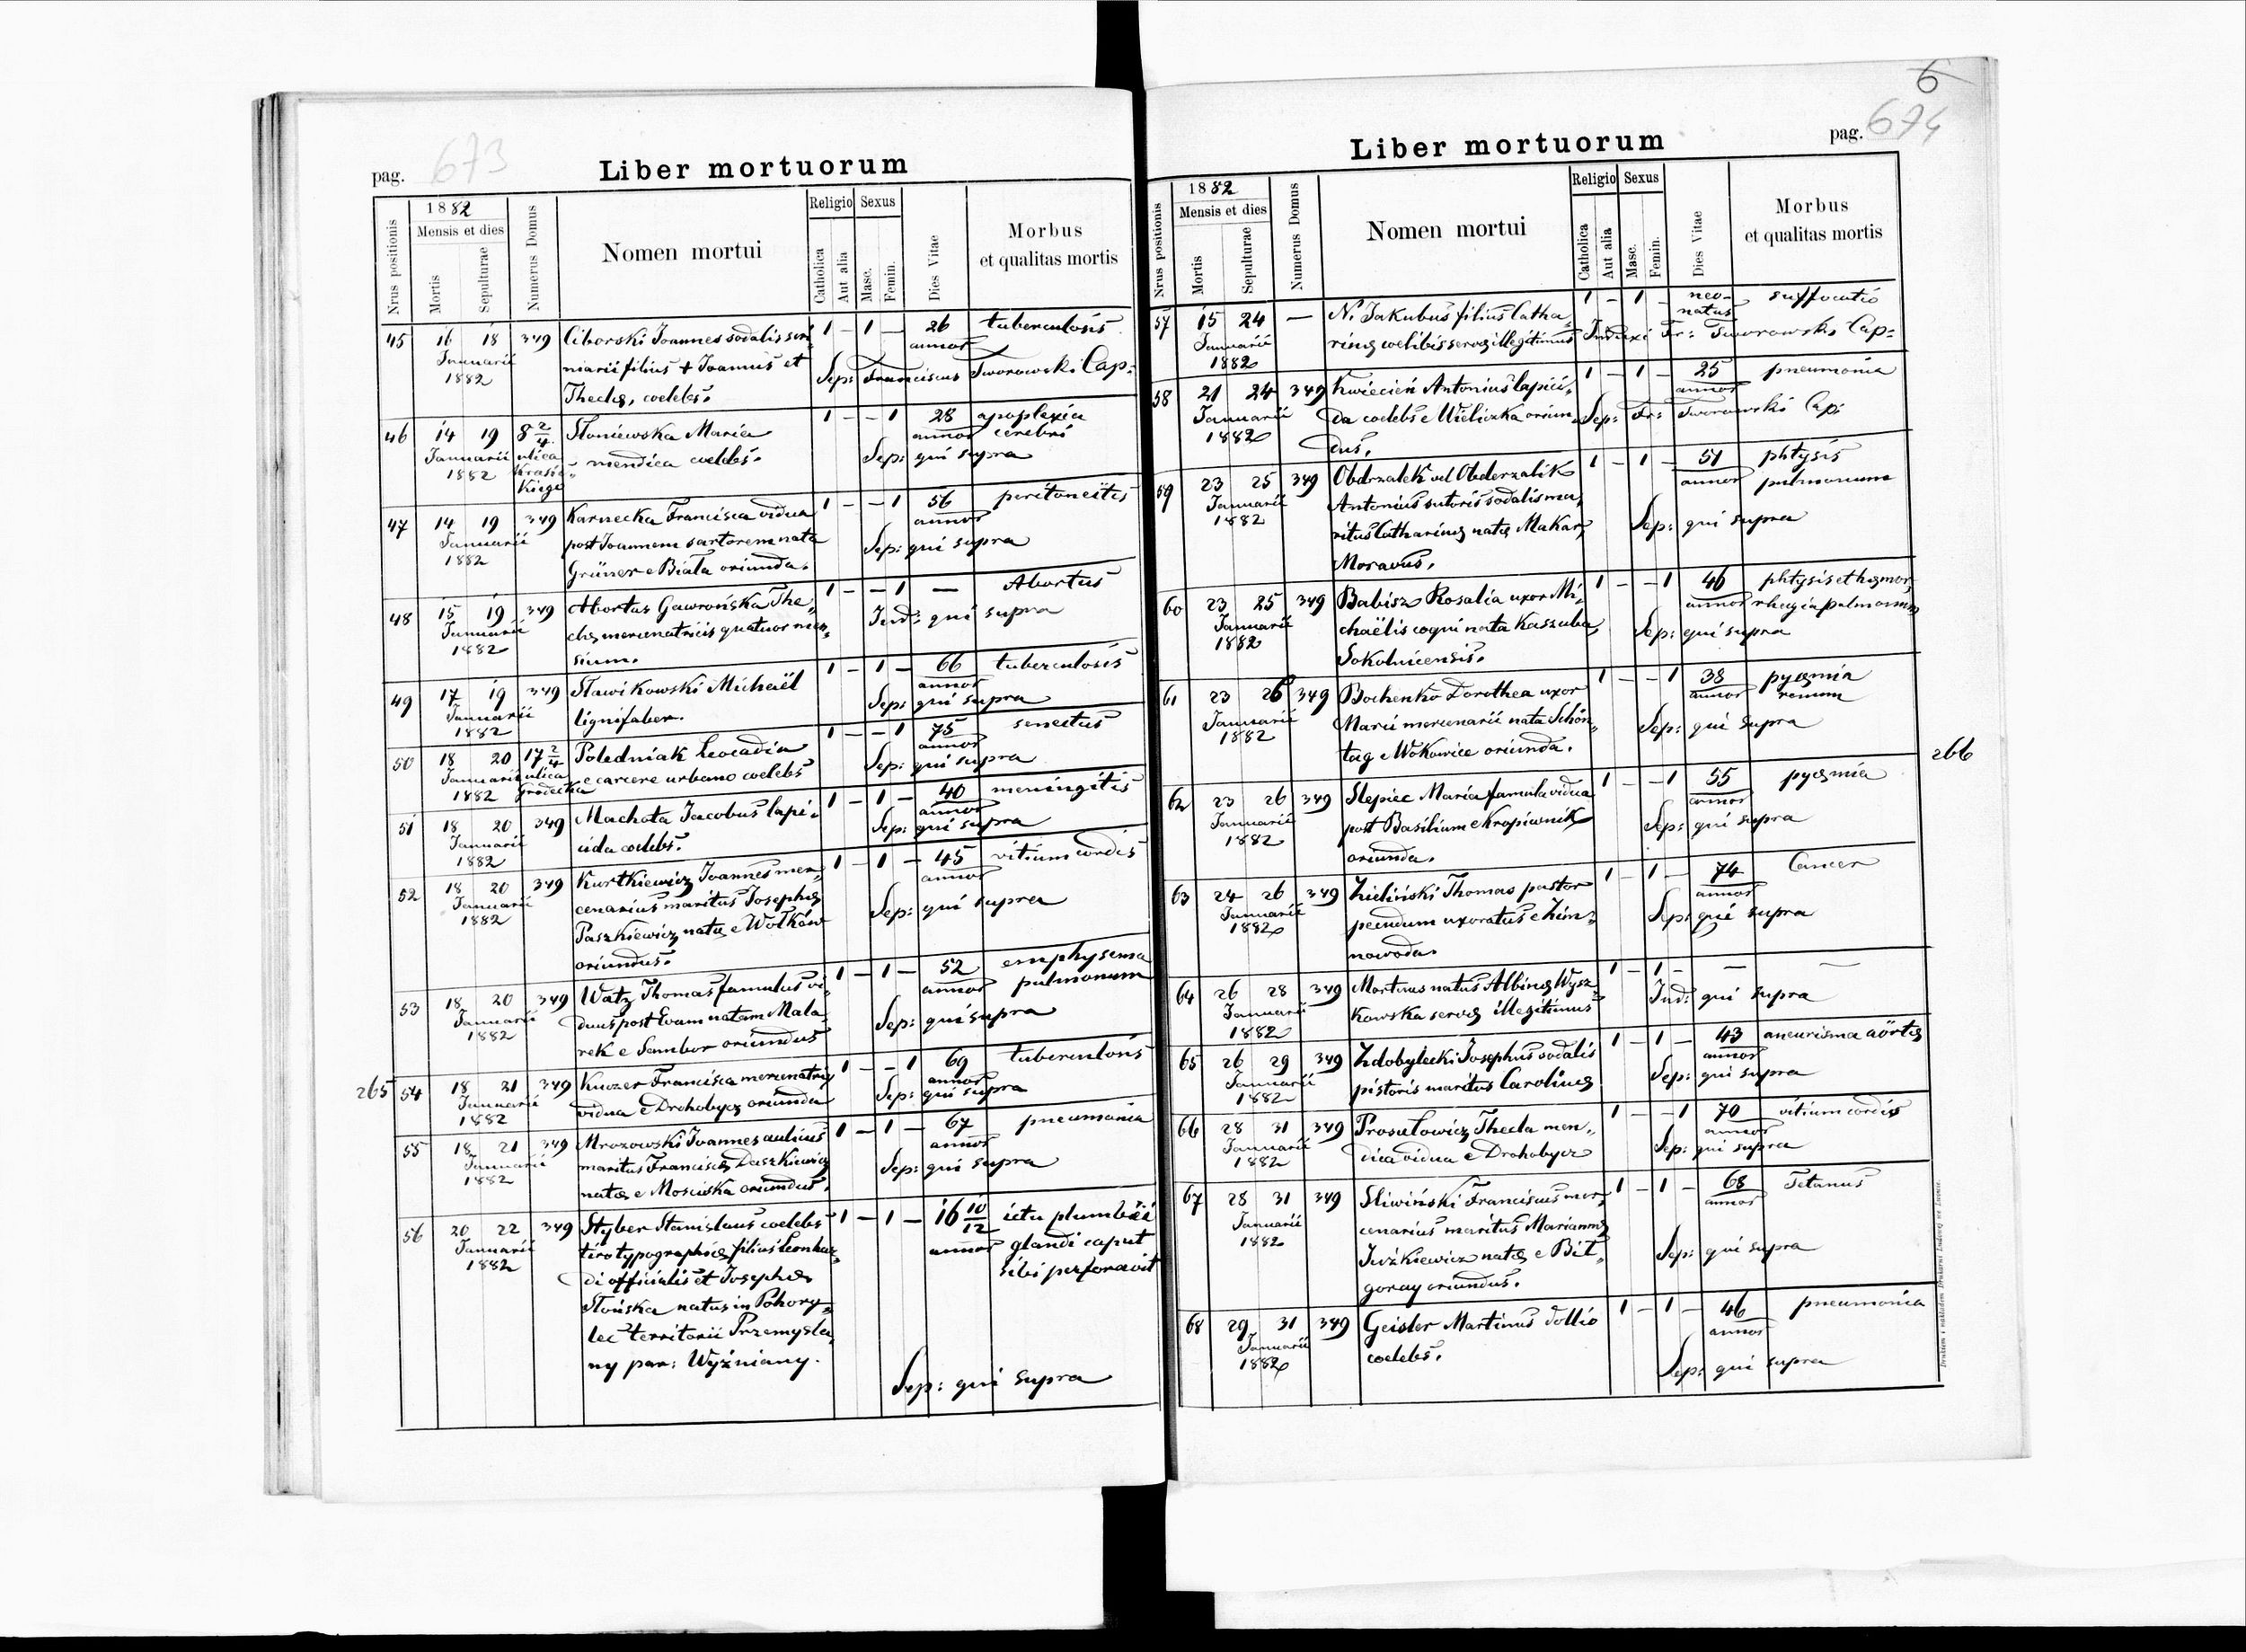 pag. 673
Liber mortuorum
Nrus positionis
1882
Mensis et dies
Mortis
Sepulturae
Numerus Domus
Nomen mortui
Religio
Catholica
Aut alia
Sexus
Masc.
Femin.
Dies Vitae
Morbus
et qualitas mortis
45 16 18 349 Ciborski Joannes sodalis scri- 1 – 1 – 26 tuberculosis
Januarii niarii filius + Joannis et annor
1882 Theclæ, coelebs. Sep: Franciscus Tworowski Cap:
46 14 19 8 2/4 Słoniewska Maria 1 – – 1 28 apoplexia
Januarii ulica mendica coelebs. annor cerebri
1882 Krasic- Sep: qui supra
kiego
47 14 19 349 Karnecka Francisca vidua 1 – – 1 56 peritoneitis
Januarii post Joannem sartorem nata annor
1882 Grüner e Biała oriunda. Sep: qui supra
48 15 19 349 Abortus Gawrońska The- 1 – – 1 — Abortus
Januarii clæ mercenatricis quatuor men- Ind: qui supra
1882 sium.
49 17 19 349 Sławikowski Michaël 1 – 1 – 66 tuberculosis
Januarii lignifaber. annor
1882 Sep: qui supra
50 18 20 17 2/4 Poledniak Leocadia 1 – – 1 75 senectus
Januarii ulica e carcere urbano coelebs annor
1882 Grodecka Sep: qui supra
51 18 20 349 Machota Jacobus lapi- 1 – 1 – 40 meningitis
Januarii cida coelebs. annor
1882 Sep: qui supra
52 18 20 349 Kurtkiewicz Joannes mer- 1 – 1 – 45 vitium cordis
Januarii cenarius maritus Josephæ annor
1882 Paszkiewicz natæ e Wołków Sep: qui supra
oriundus.
53 18 20 349 Watz Thomas famulus vi- 1 – 1 – 52 emphysema
Januarii duus post Evam natam Mala- annor pulmonum
1882 rek e Sambor oriundus Sep: qui supra
265 54 18 21 349 Kuczer Francisca mercenatrix 1 – – 1 69 tuberculosis
Januarii vidua e Drohobycz oriunda annor
1882 Sep: qui supra
55 18 21 349 Mrozowski Joannes aulicus 1 – 1 – 67 pneumonia
Januarii maritus Franciscæ Daszkiewicz annor
1882 natæ e Mosciska oriundus. Sep: qui supra
56 20 22 349 Styber Stanislaus coelebs 1 – 1 – 16 10/12 ictu plumbei
Januarii tiro typographiæ filius Leonhar- annor glandi caput
1882 di officialis et Josephæ sibi perforavit
Słońska natus in Pohory-
lec territorii Przemysla-
ny par: Wyżniany.
Sep: qui supra
6
pag. 674
Liber mortuorum
Nrus positionis
1882
Mensis et dies
Mortis
Sepulturae
Numerus Domus
Nomen mortui
Religio
Catholica
Aut alia
Sexus
Masc.
Femin.
Dies Vitae
Morbus
et qualitas mortis
57 15 24 — N. Jakubus filius Catha- 1 – 1 – neo- suffocatio
Januarii rinæ coelibis servæ illegitimus natus
1882 Induxi Fr: Tworowski Cap:
58 21 24 349 Kwiecień Antonius lapici- 1 – 1 – 25 pneumonia
Januarii da coelebs e Wieliczka oriun- annor
1882 dus. Sep: Fr: Tworowski Cap:
59 23 25 349 Obdrzalek vel Obderzalik 1 – 1 – 51 phtysis
Januarii Antonius sutoris sodalis ma- annor pulmonum
1882 ritus Catharinæ natæ Makar, Sep: qui supra
Moravus.
60 23 25 349 Babisz Rosalia uxor Mi- 1 – – 1 46 phtysis et hæmor-
Januarii chaëlis coqui nata Kaszuba, annor rhagia pulmonum
1882 Sokolnicensis. Sep: qui supra
61 23 26 349 Bochenko Dorothea uxor 1 – – 1 38 pyæmia
Januarii Marci mercenarii nata Schön- annor renum
1882 tag e Wokowice oriunda. Sep: qui supra
266
62 23 26 349 Slepiec Maria famula vidua 1 – – 1 55 pyæmia
Januarii post Basilium e Kropiwnik annor
1882 oriunda. Sep: qui supra
63 24 26 349 Zieliński Thomas pastor 1 – 1 – 74 Cancer
Januarii pecudum uxoratus e Zim- annor
1882 nowoda. Sep: qui supra
64 26 28 349 Mortuus natus Albinæ Wysz- 1 – 1 – — —
Januarii kowska servæ illegitimus Ind: qui supra
1882
65 26 29 349 Zdobylecki Josephus sodalis 1 – 1 – 43 aneurisma aörtæ
Januarii pistoris maritus Carolinæ annor
1882 Sep: qui supra
66 28 31 349 Prosułowicz Thecla men- 1 – – 1 70 vitium cordis
Januarii dica vidua e Drohobycz annor
1882 Sep: qui supra
67 28 31 349 Sliwiński Franciscus mer- 1 – 1 – 68 Tetanus
Januarii cenarius maritus Mariannæ annor
1882 Juzkiewicz natæ e Bił- Sep: qui supra
goray oriundus.
68 29 31 349 Geisler Martinus dollio 1 – 1 – 46 pneumonia
Januarii coelebs. annor
1882 Sep: qui supra
Drukiem i nakładem Drukarni Ludowej we Lwowie.